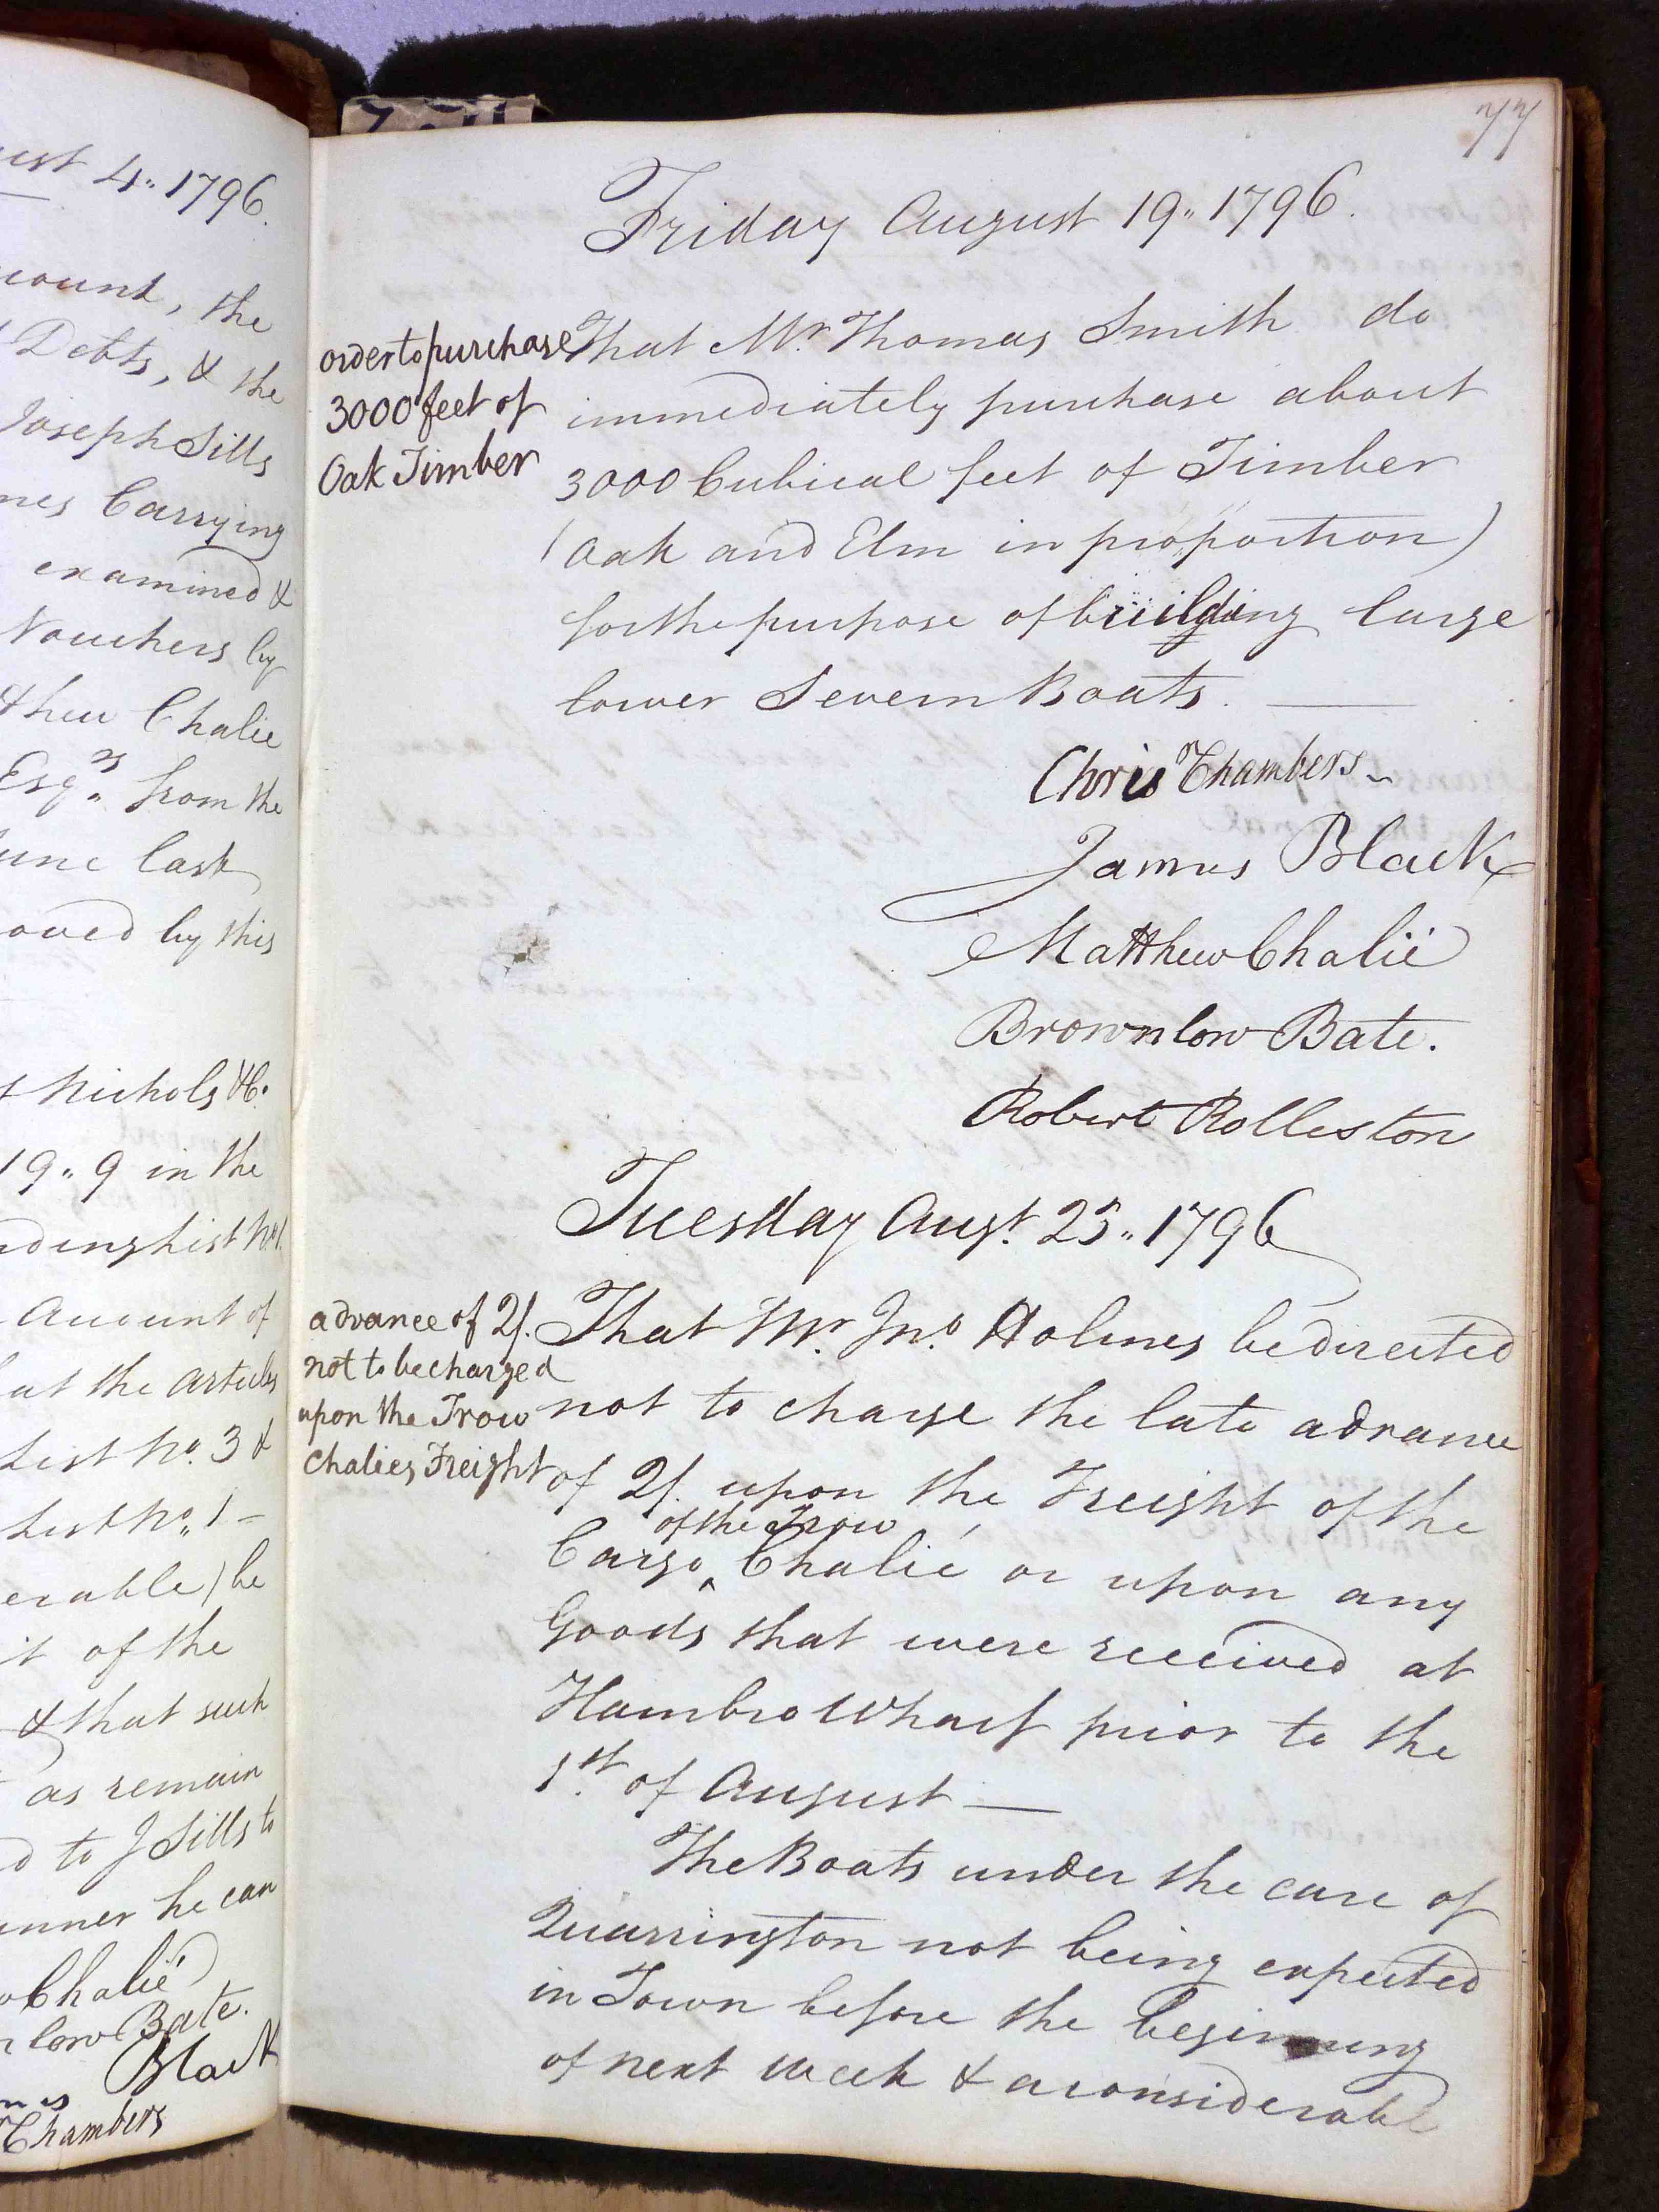 ust 4.. 1796.
count, the
Debts, & the
Joseph Sills
nes Carrying
examined &
Vouchers by
thew Chalie
Esqrs. from the
une last
oved by this
t Nichols & Co.
19.. 9 in the
nding List No 1.
Amount of
at the articles
List No. 3 &
List No.. 1 -
erable) be
it of the
& that such
as remain
d to J Sills to
anner he can
w Chalié
n low Bate.
Black
mes
r Chambers
77
Friday August 19.. 1796.
order to purchase
3000 feet of
Oak Timber
That Mr. Thomas Smith do
immediately purchase about
3000 Cubical feet of Timber
(Oak and Elm in proportion)
for the purpose of building large
lower Severn Boats.
Chrisr Chambers
James Black
Matthew Chalié
Brownlow Bate.
Robert Rolleston
Tuesday Augt. 23.. 1796
advance of 2/.
not to be charged
upon the Trow
Chalies Freight
That Mr. Jno. Holmes be directed
not to charge the late advance
of 2/. upon the Freight of the
of the Trow
Cargo ^ Chalié or upon any
Goods that were received at
Hambro Wharf prior to the
1st. of August —
The Boats under the care of
Quarrington not being expected
in Town before the beginning
of next week & a considerable